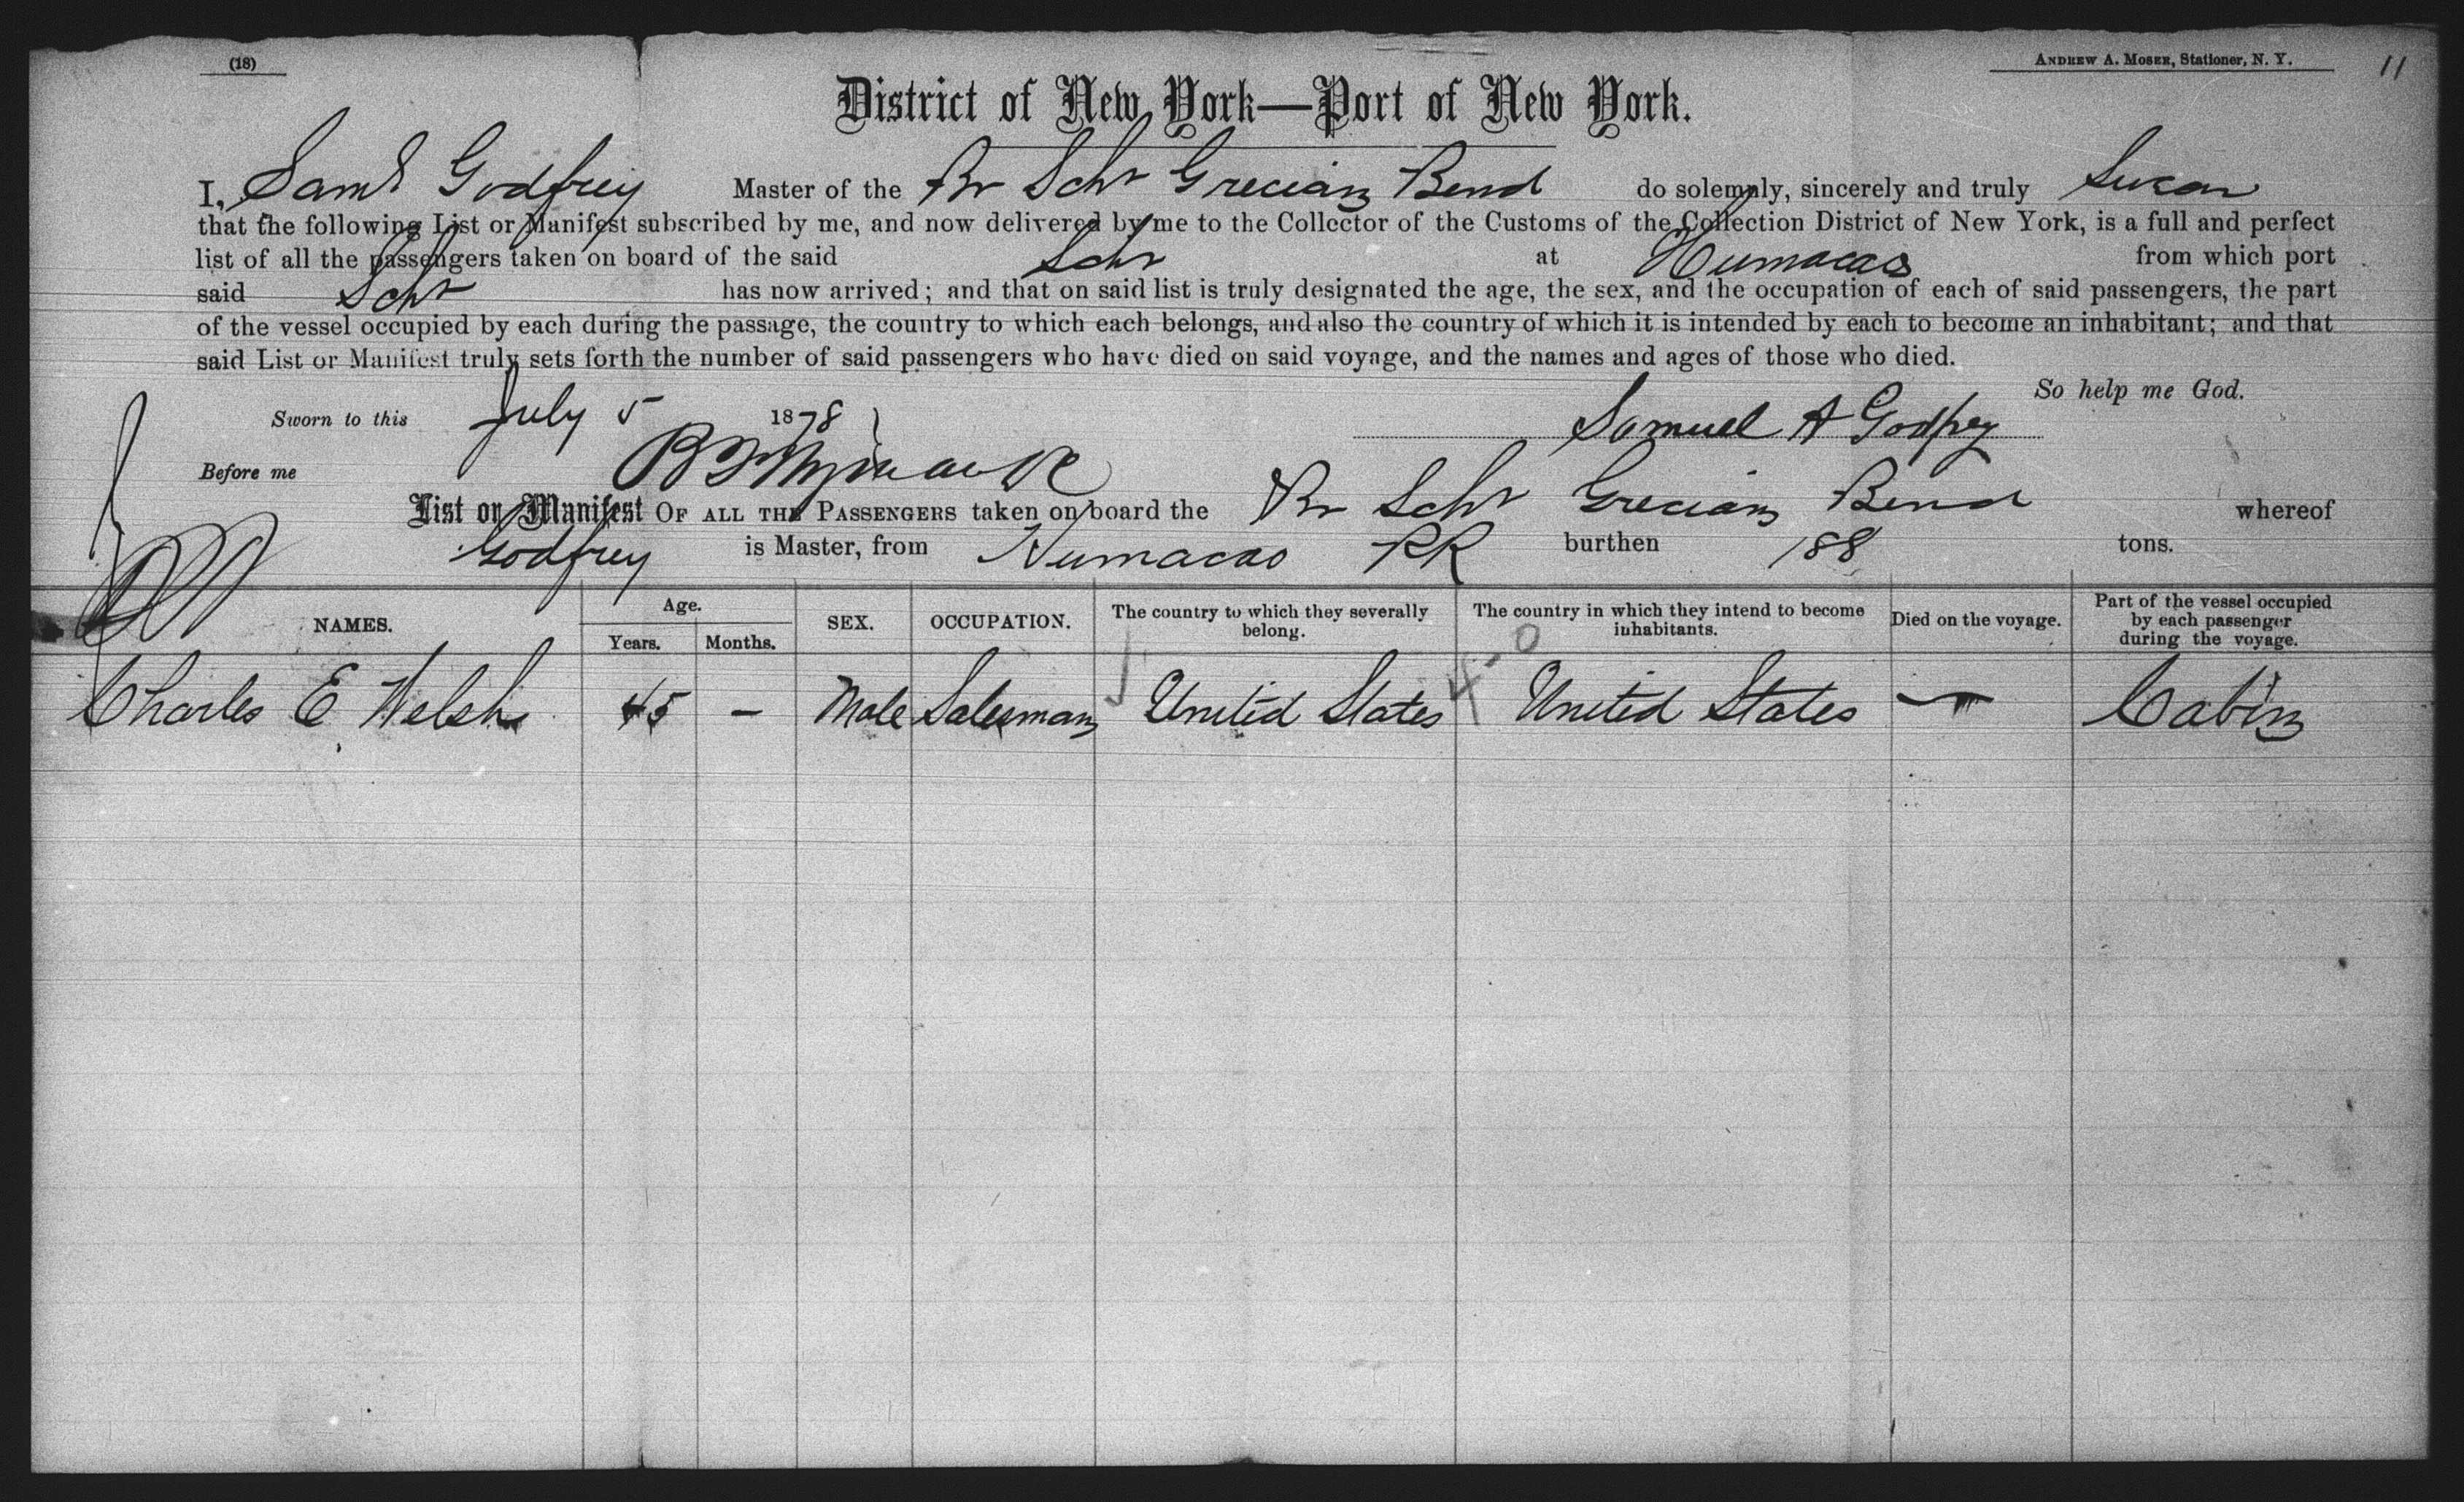 (18)
Andrew A. Moser, Stationer, N. Y.
11
District of New York—Port of New York.
I, Saml Godfrey Master of the Br Schr Grecian Bend do solemnly, sincerely and truly Swear
that the following List or Manifest subscribed by me, and now delivered by me to the Collector of the Customs of the Collection District of New York, is a full and perfect
list of all the passengers taken on board of the said Schr at Humacao from which port
said Schr has now arrived; and that on said list is truly designated the age, the sex, and the occupation of each of said passengers, the part
of the vessel occupied by each during the passage, the country to which each belongs, and also the country of which it is intended by each to become an inhabitant; and that
said List or Manifest truly sets forth the number of said passengers who have died on said voyage, and the names and ages of those who died.
So help me God.
Sworn to this July 5 1878 Samuel A Godfrey
Before me
List or Manifest OF ALL THE PASSENGERS taken on board the Br Schr Grecian Bend whereof
Godfrey is Master, from Humacao PR burthen 188 tons.
NAMES. Age. Years. Months. SEX. OCCUPATION. The country to which they severally belong. The country in which they intend to become inhabitants. Died on the voyage. Part of the vessel occupied by each passenger during the voyage.
4-0
Charles E Welsh 45 – Male Salesman United States United States — Cabin